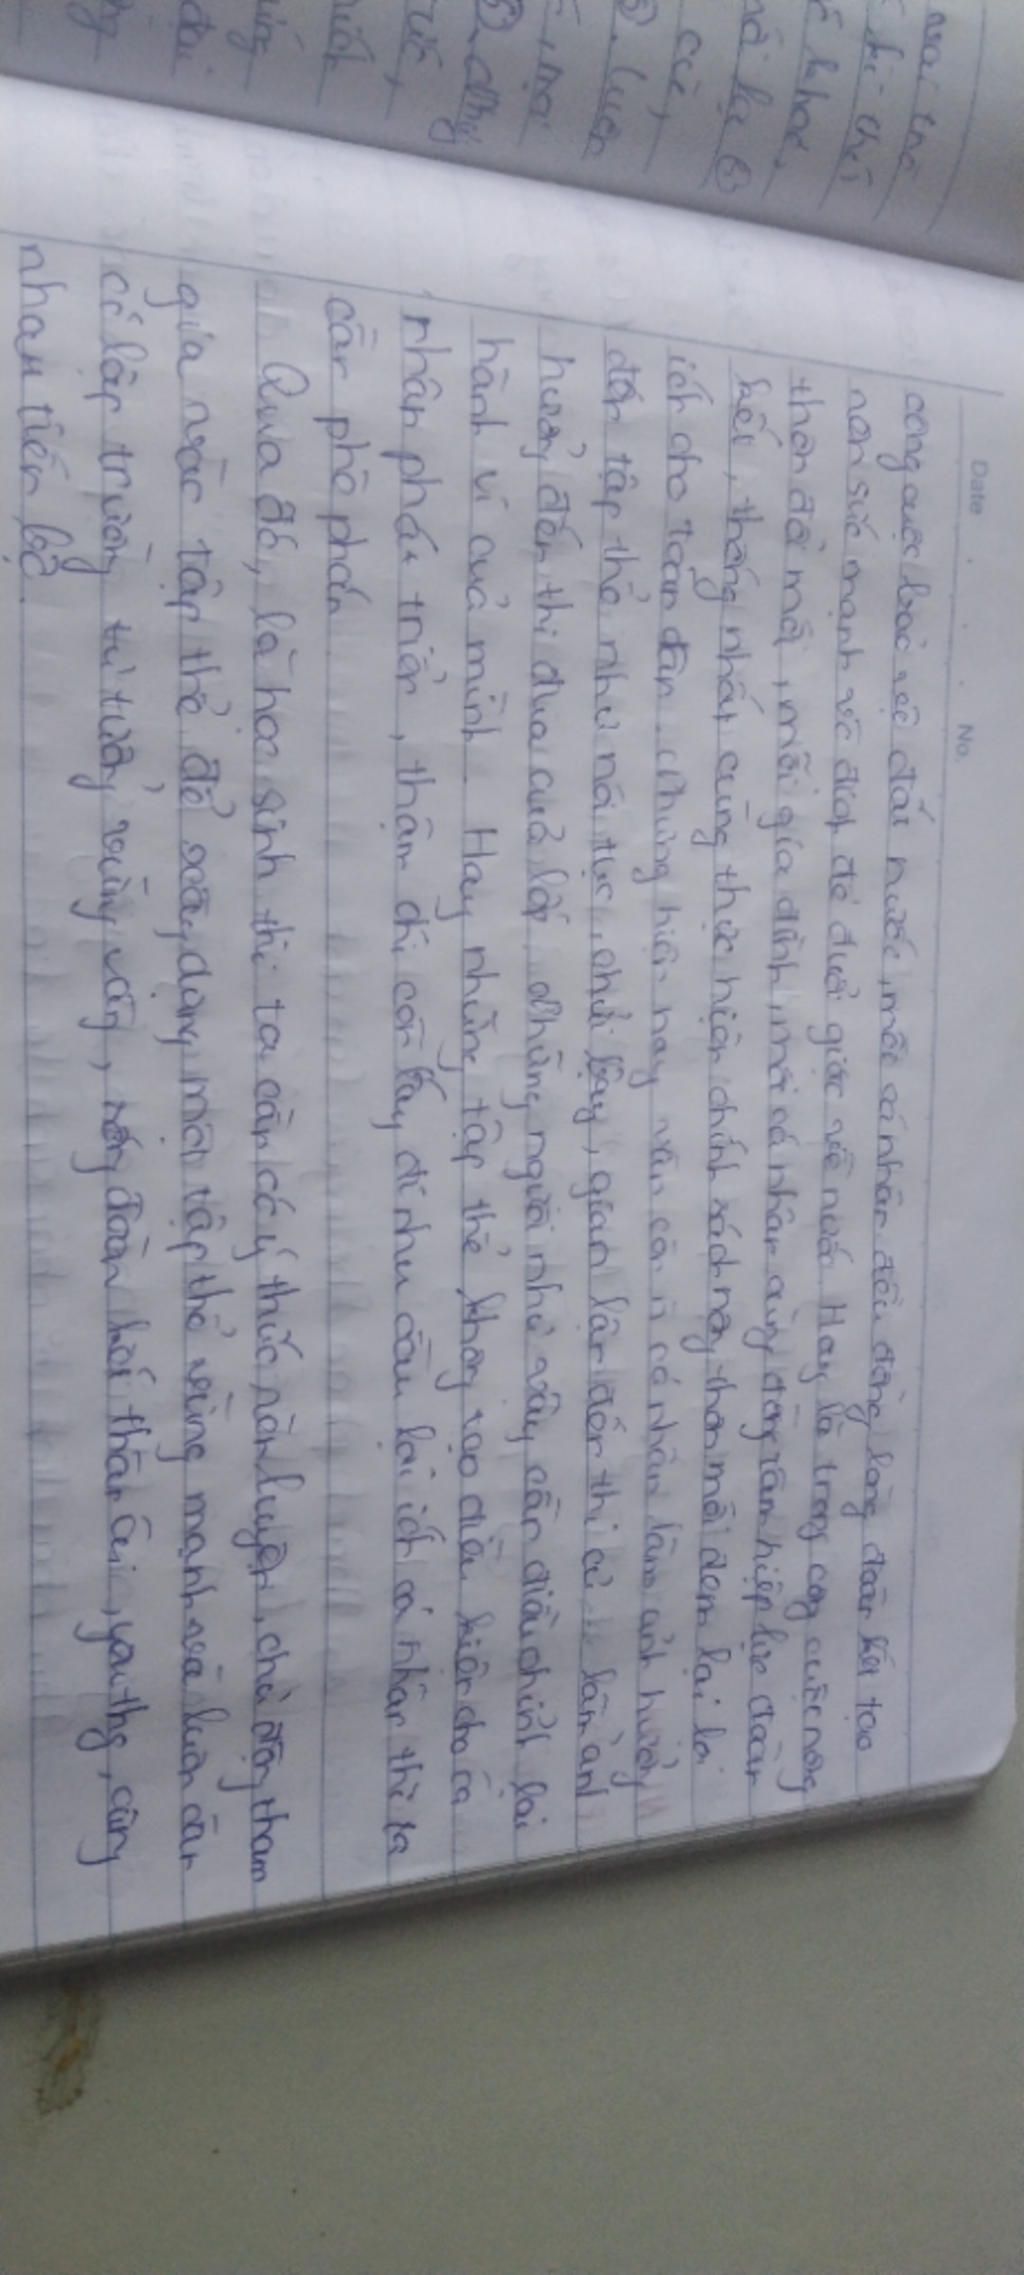 Date No.
công cuộc bảo vệ đất nước, mỗi cá nhân đều đồng lòng đoàn kết tạo
nên sức mạnh vô địch để đuổi giặc về nước. Hay là trong công cuộc nông
thôn đổi mới, mỗi gia đình, mỗi cá nhân cùng đồng tâm hiệp lực đoàn
kết, thống nhất cùng thực hiện chính sách nông thôn mới đem lại lợi
ích cho toàn dân. Nhưng hiện nay vẫn còn cá nhân làm ảnh hưởng
đến tập thể như nói tục, chửi bậy, gian lận đến thi cử... làm ảnh
hưởng đến thi đua của lớp. Những người như vậy cần điều chỉnh lại
hành vi của mình. Hay những tập thể không tạo điều kiện cho cá
nhân phát triển, thậm chí còn lấy đi nhu cầu lợi ích cá nhân thì ta
cần phê phán
Qua đó, là học sinh thì ta cần có ý thức rèn luyện, chủ động tham
gia vào tập thể để xây dựng một tập thể vững mạnh và luôn cần
có lập trường tư tưởng vững vàng, đoàn kết thân ái, yêu thg, cùng
nhau tiến bộ.